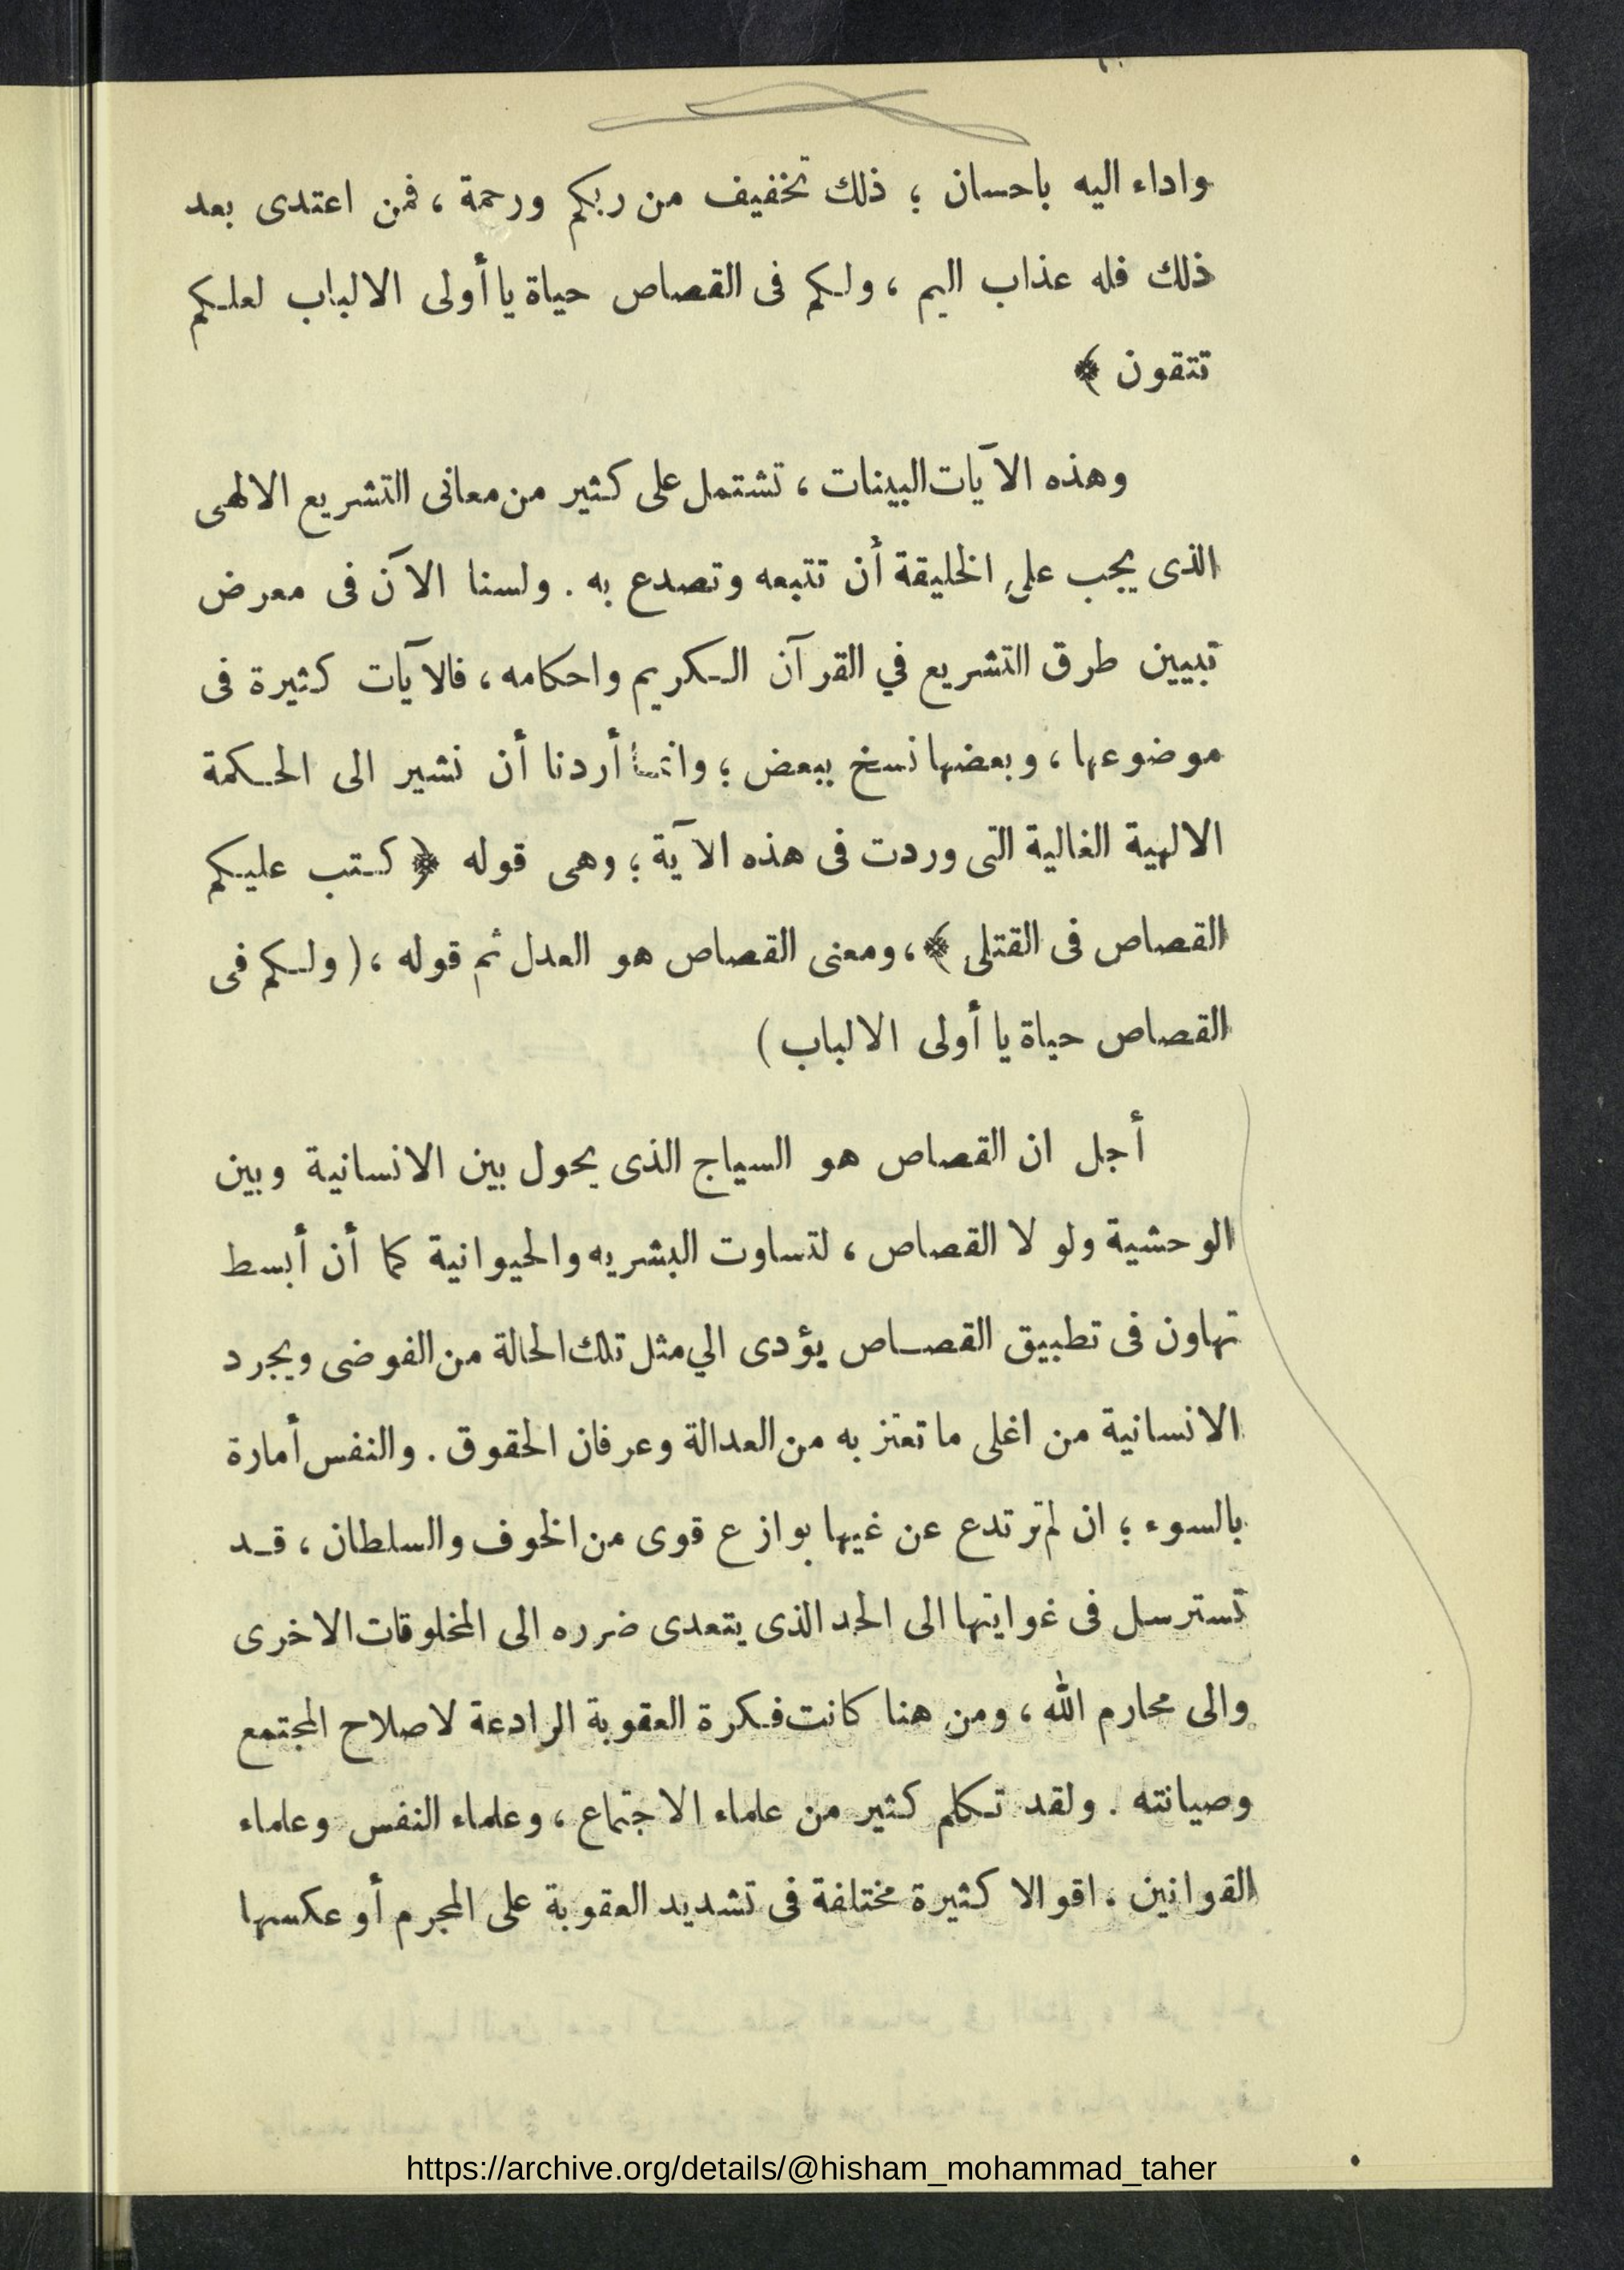 واداء اليه باحسان ؛ ذلك تخفيف من ربكم ورحمة ، فمن اعتدى بعد
ذلك فله عذاب اليم ، ولكم فى القصاص حياة يا أولى الالباب لعلكم
تتقون ﴾
وهذه الآيات البينات ، تشتمل على كثير من معانى التشريع الالهى
الذى يجب على الخليقة أن تتبعه وتصدع به . ولسنا الآن فى معرض
تبيين طرق التشريع في القرآن الكريم واحكامه ، فالآيات كثيرة فى
موضوعها ، وبعضها نسخ ببعض ؛ وانما أردنا أن نشير الى الحكمة
الالهية الغالية التى وردت فى هذه الآية ؛ وهى قوله ﴿ كتب عليكم
القصاص فى القتلى ﴾ ، ومعنى القصاص هو العدل ثم قوله ، ( ولكم فى
القصاص حياة يا أولى الالباب )
أجل ان القصاص هو السياج الذى يحول بين الانسانية وبين
الوحشية ولو لا القصاص ، لتساوت البشريه والحيوانية كما أن أبسط
تهاون فى تطبيق القصاص يؤدى الي مثل تلك الحالة من الفوضى ويجرد
الانسانية من اغلى ما تعتز به من العدالة وعرفان الحقوق . والنفس أمارة
بالسوء ؛ ان لم ترتدع عن غيها بوازع قوى من الخوف والسلطان ، قد
تسترسل فى غوايتها الى الحد الذى يتعدى ضرره الى المخلوقات الاخرى
والى محارم الله ، ومن هنا كانت فكرة العقوبة الرادعة لاصلاح المجتمع
وصيانته . ولقد تكلم كثير من علماء الاجتماع ، وعلماء النفس وعلماء
القوانين . اقوالا كثيرة مختلفة فى تشديد العقوبة على المجرم أو عكسها
https://archive.org/details/@hisham_mohammad_taher